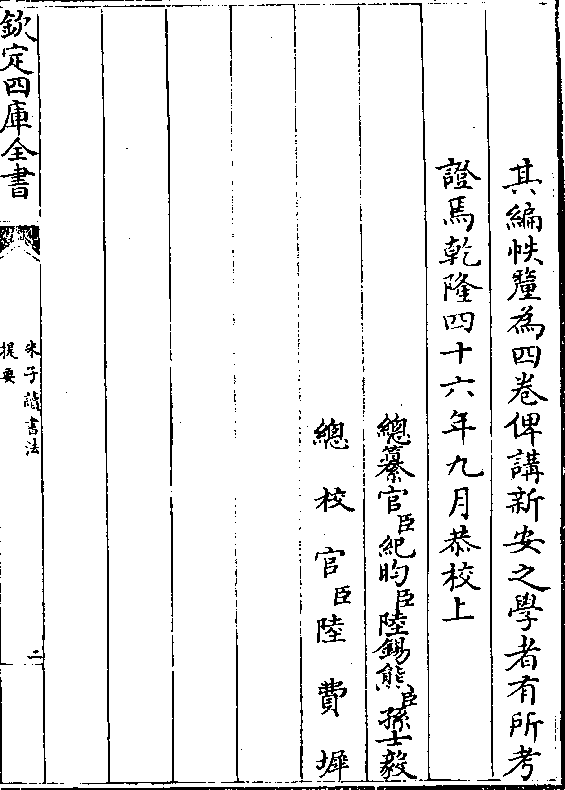 其編帙釐為四卷俾講新安之學者有所考
證焉乾隆四十六年九月恭校上
總纂官臣紀昀臣陸錫熊臣孫士毅
總校官臣陸費墀
欽定四庫全書
朱子讀書法
提要
二